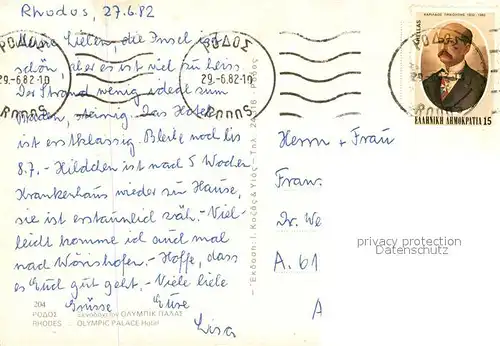 Rhodos, 27.6.82
Meine Lieben, die Insel ist
schön, aber es ist viel zu heiss
Der Strand wenig ideal zum
Baden, steinig. Das Hotel
ist erstklassig. Bleibe noch bis
8.7. - Hildchen ist nach 5 Wochen
Krankenhaus wieder zu Hause,
sie ist erstaunlich zäh. - Viel-
leicht komme ich auch mal
nach Wörishofen. - Hoffe, dass
es Euch gut geht. - Viele liebe
Grüsse Eure
Lisa
204
ΡΟΔΟΣ - Ξενοδοχείον ΟΛΥΜΠΙΚ ΠΑΛΑΣ
RHODES - OLYMPIC PALACE Hotel
Έκδοση: Ι. Κριζάς & Υιός - Τηλ. - Ρόδος
ΡΟΔΟΣ
29.-6.82
RODOS
ΡΟΔΟΣ
29.-6.82-10
RODOS
HELLAS
ΕΛΛΗΝΙΚΗ ΔΗΜΟΚΡΑΤΙΑ 15
Herrn + Frau
Fran
Dr. We
A. 61
A
privacy protection
www.oldthing.de